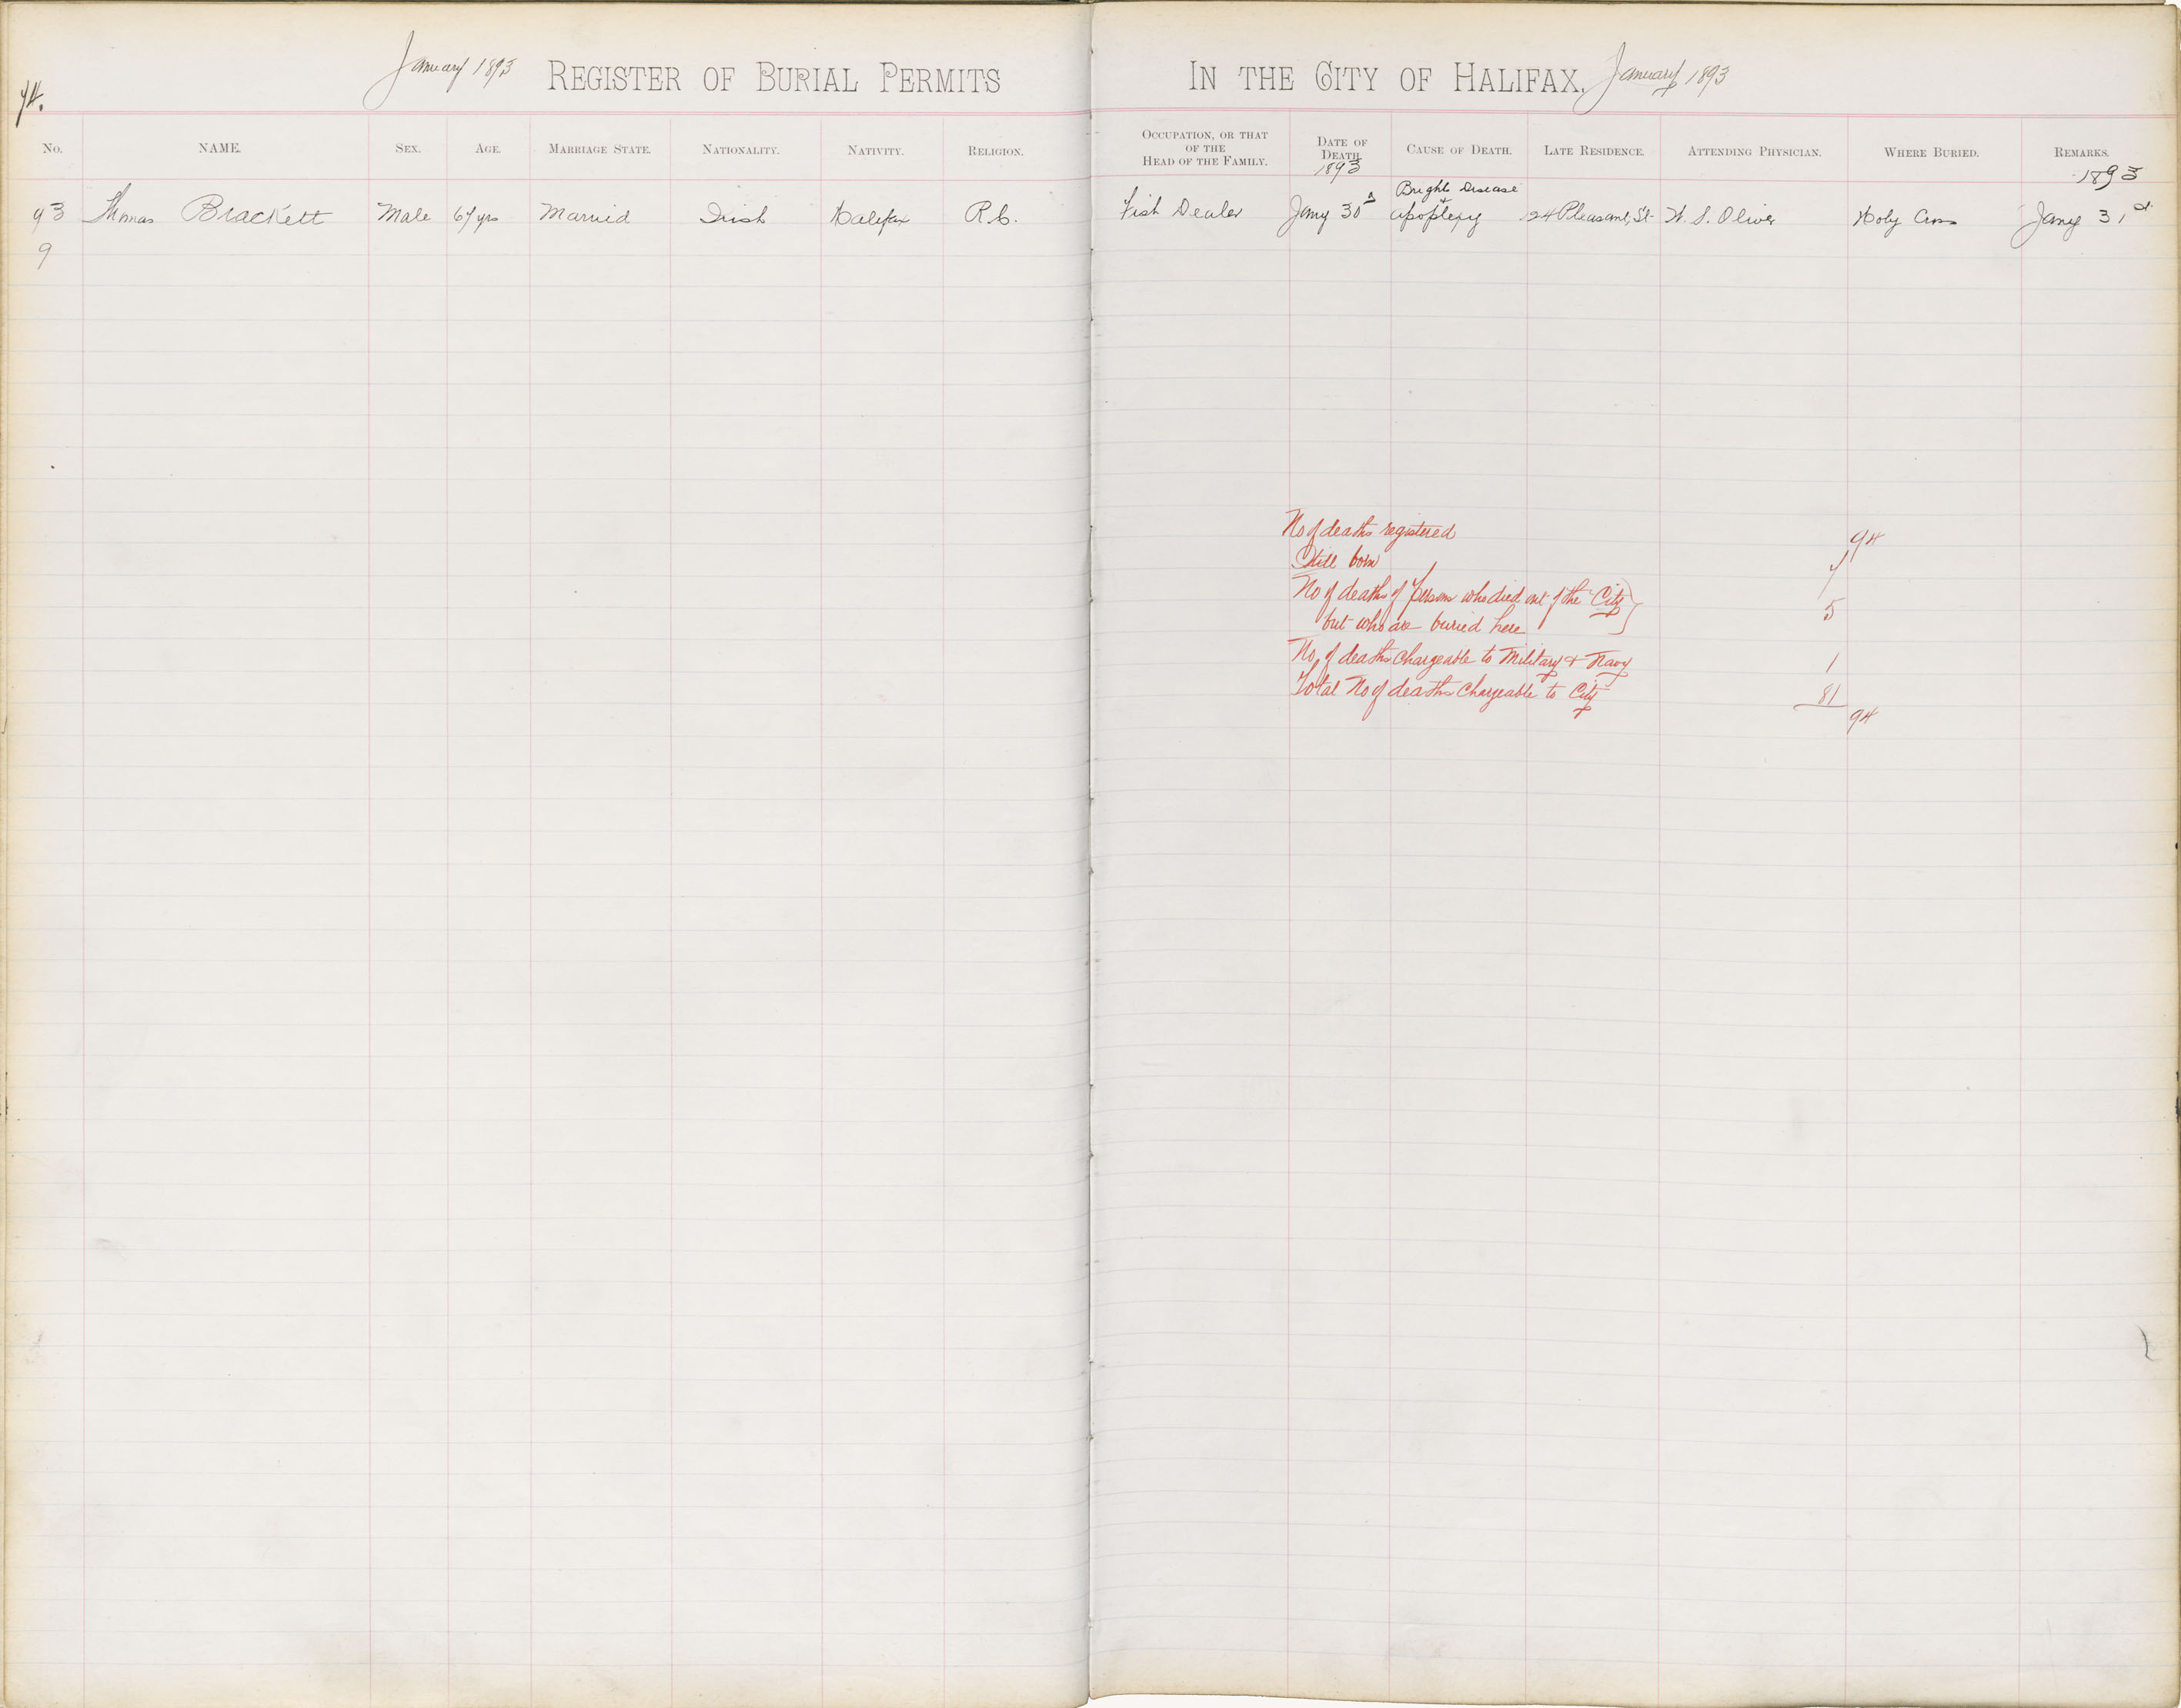 January 1893 REGISTER OF BURIAL PERMITS IN THE CITY OF HALIFAX. January 1893
74.
No. NAME. SEX. AGE. MARRIAGE STATE. NATIONALITY. NATIVITY. RELIGION. OCCUPATION, OR THAT OF THE HEAD OF THE FAMILY. DATE OF DEATH. CAUSE OF DEATH. LATE RESIDENCE. ATTENDING PHYSICIAN. WHERE BURIED. REMARKS.
1893 1893
Brights Disease
93 Thomas Brackett Male 67 yrs Married Irish Halifax R.C. Fish Dealer Jany 30 + apoplexy 124 Pleasant, St. W. S. Oliver Holy Cross Jany 31st
9
No of deaths registered 94
Still born 7
No of deaths of persons who died out of the City
but who are buried here 5
No, of deaths chargeable to Military & Navy 1
Total No of deaths chargeable to City 81
94